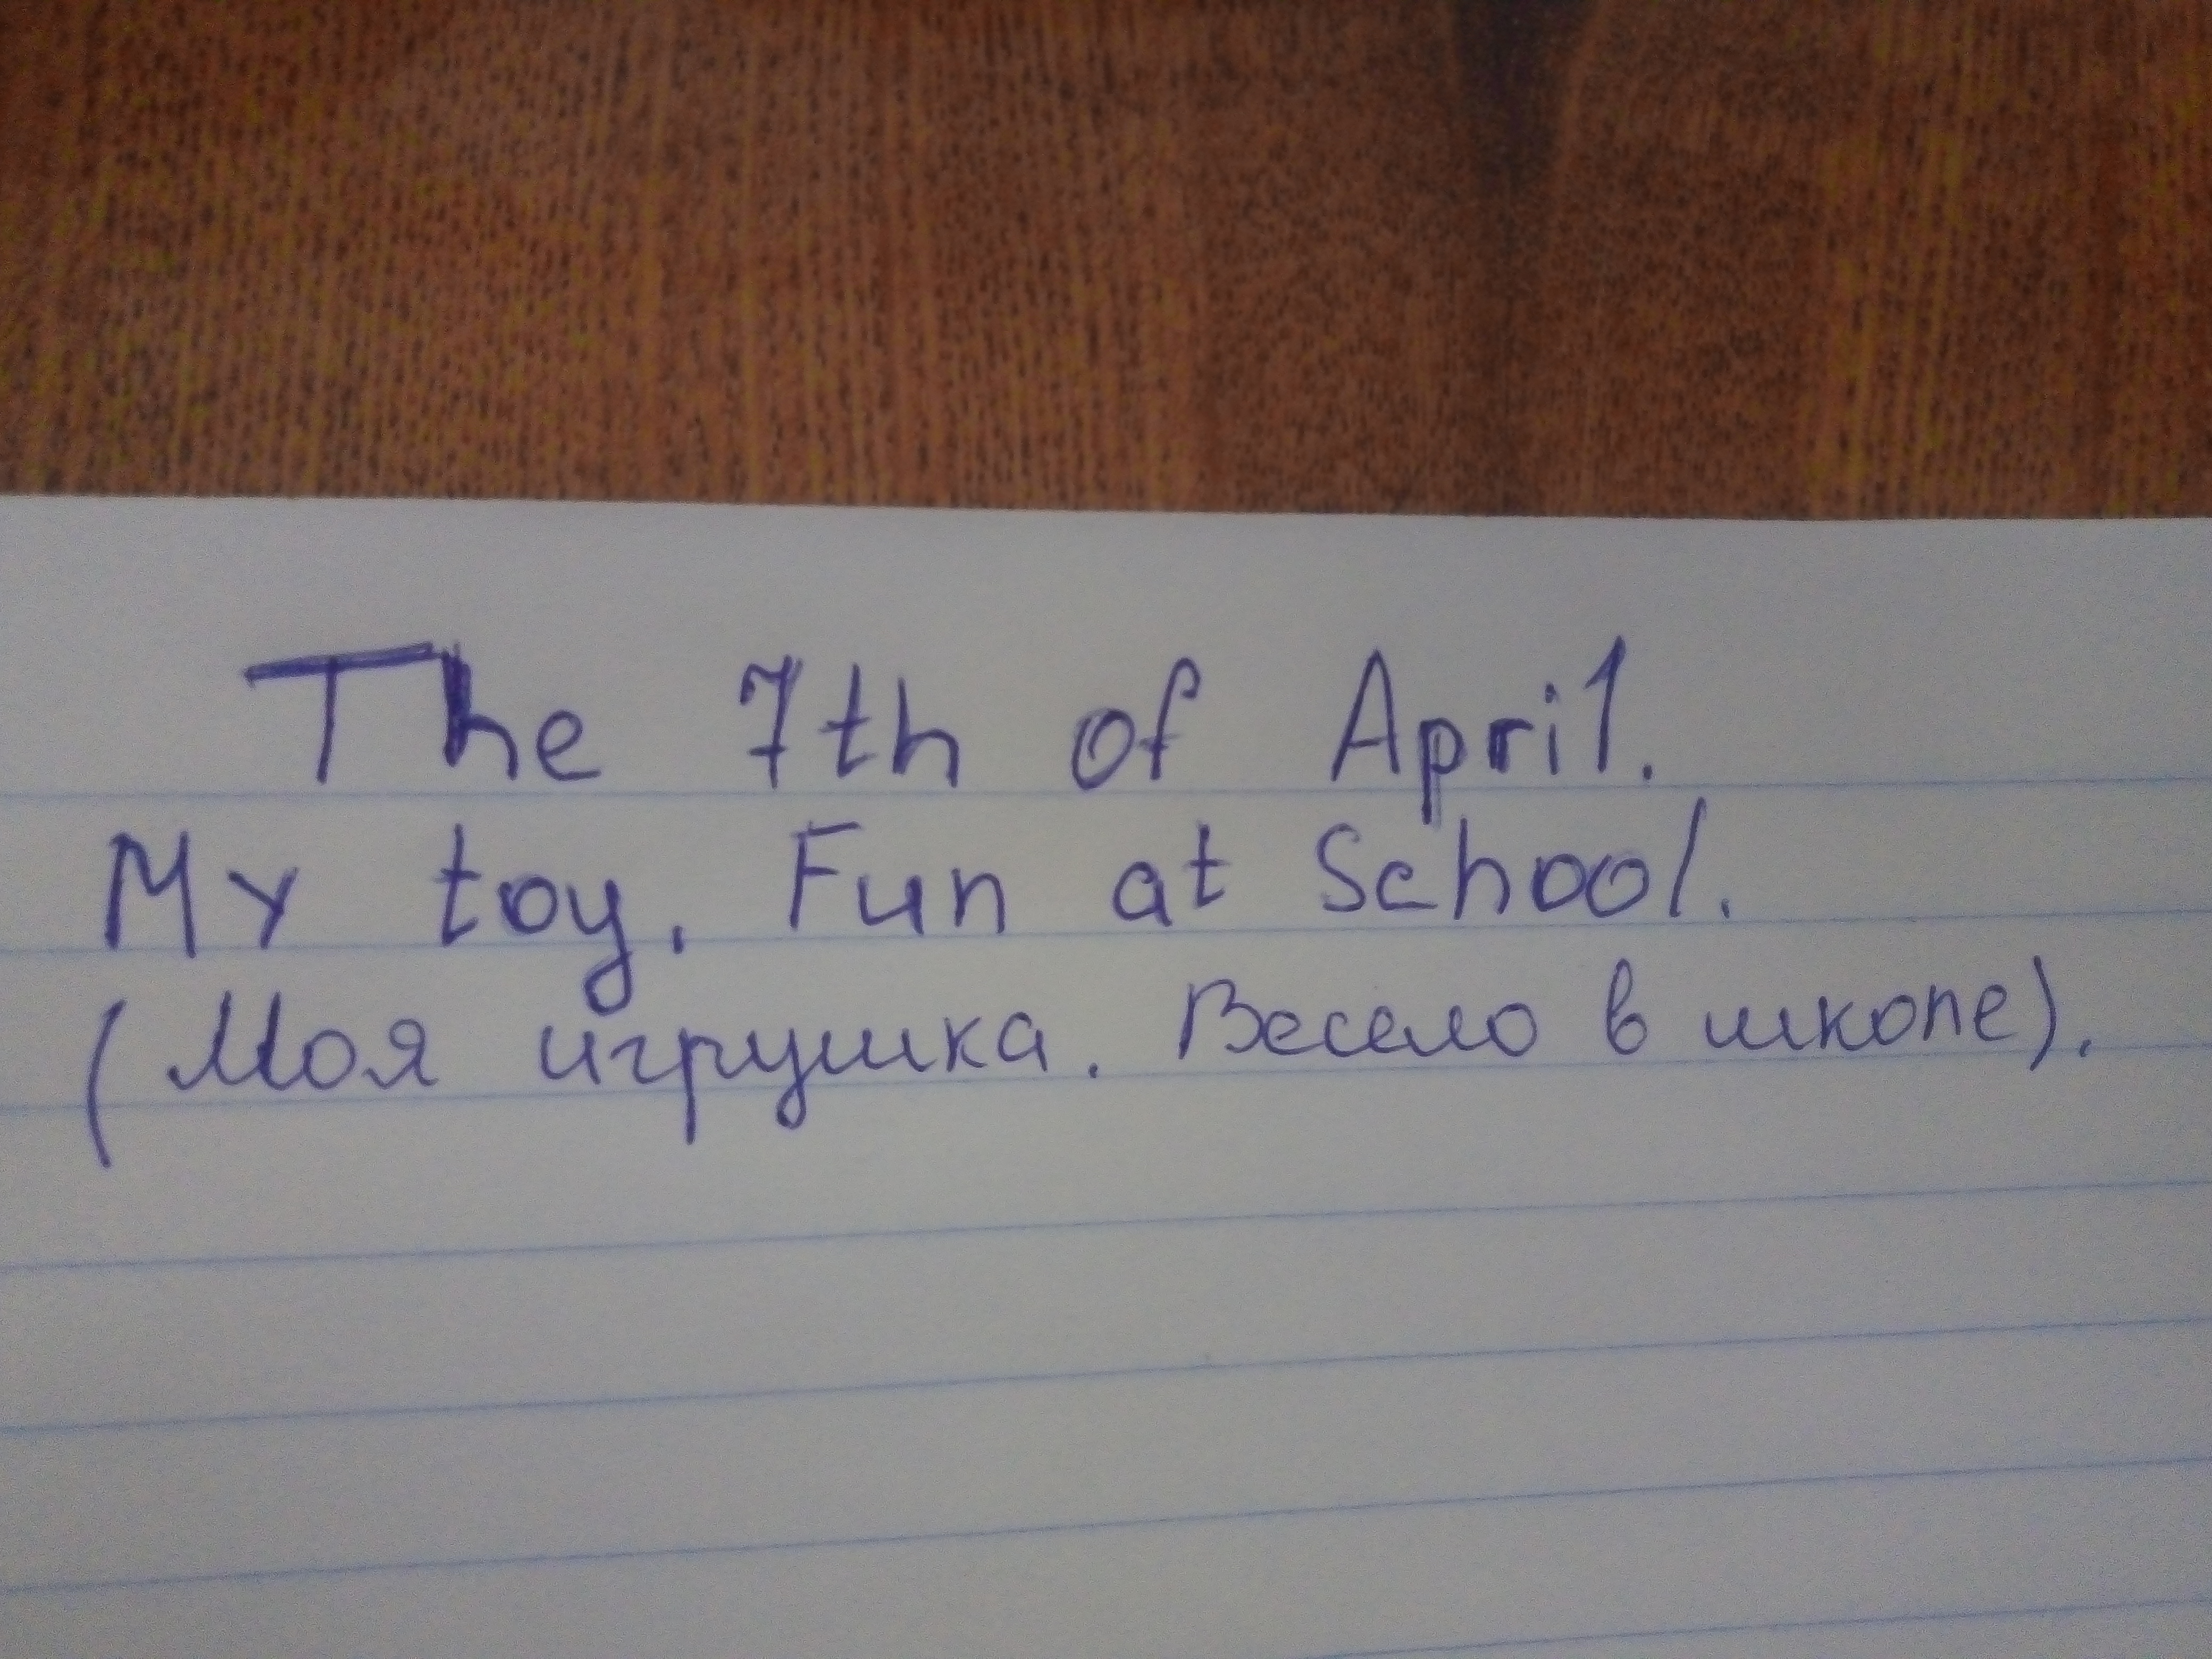 The 7th of April.
My toy. Fun at School.
(Моя игрушка. Весело в школе).